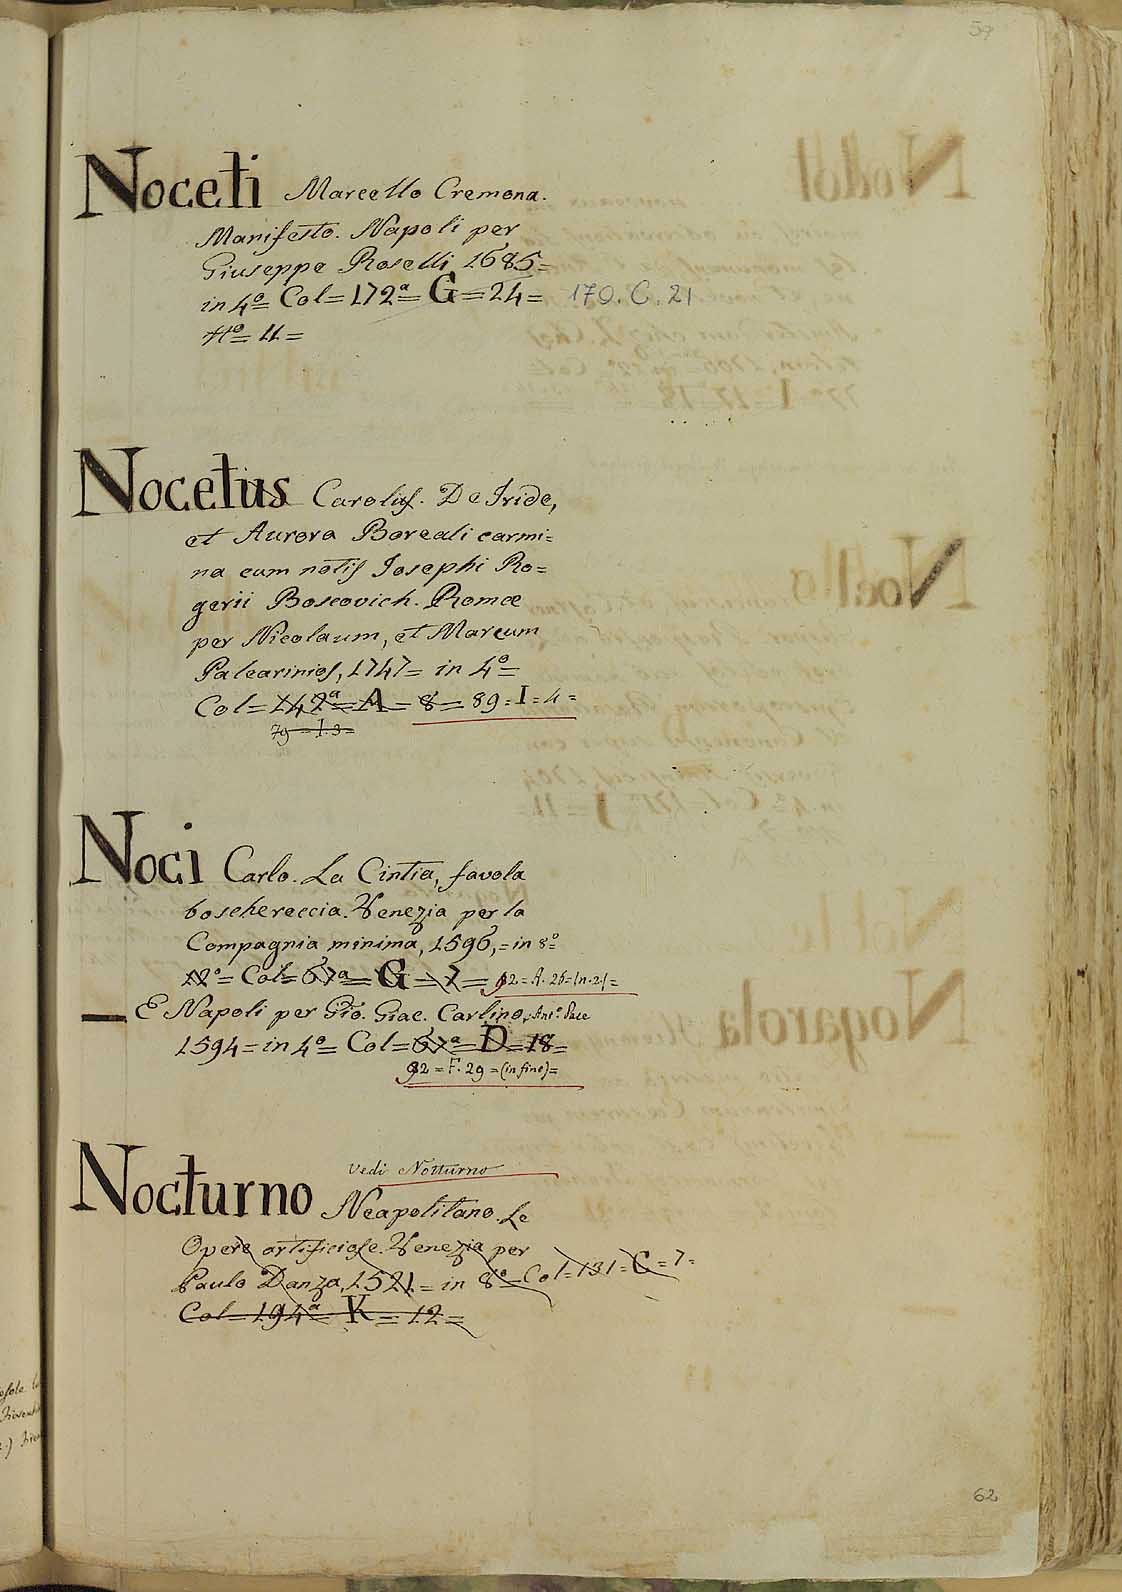 59
Noceti Marcello Cremona.
Manifesto. Napoli per
Giuseppe Roselli 1685=
in 4º= Col=172ª= G=24= 170. C. 21
Nº= 11=
Nocetius Carolus. De Iride,
et Aurora Boreali carmi=
na cum notis Josephi Ro=
gerii Boscovich. Romæ
per Nicolaum, et Marcum
Palearinios, 1747= in 4º=
Col=142ª= A=8= 89=I=4=
79=I.3=
Noci Carlo. La Cintia, favola
boschereccia. Venezia per la
Compagnia minima, 1596,=in 8º=
12º= Col=67ª= G=7= 92=A.26=(n.2)=
— E Napoli per Gio. Giac. Carlino, Antº Pace
1594=in 4º= Col=67ª= D=18=
92=F.29=(in fine)=
Vedi Notturno
Nocturno Neapolitano. Le
Opere artificiose. Venezia per
Paulo Danza, 1521= in 8º= Col=131=C=7=
Col=194ª= K=12=
62